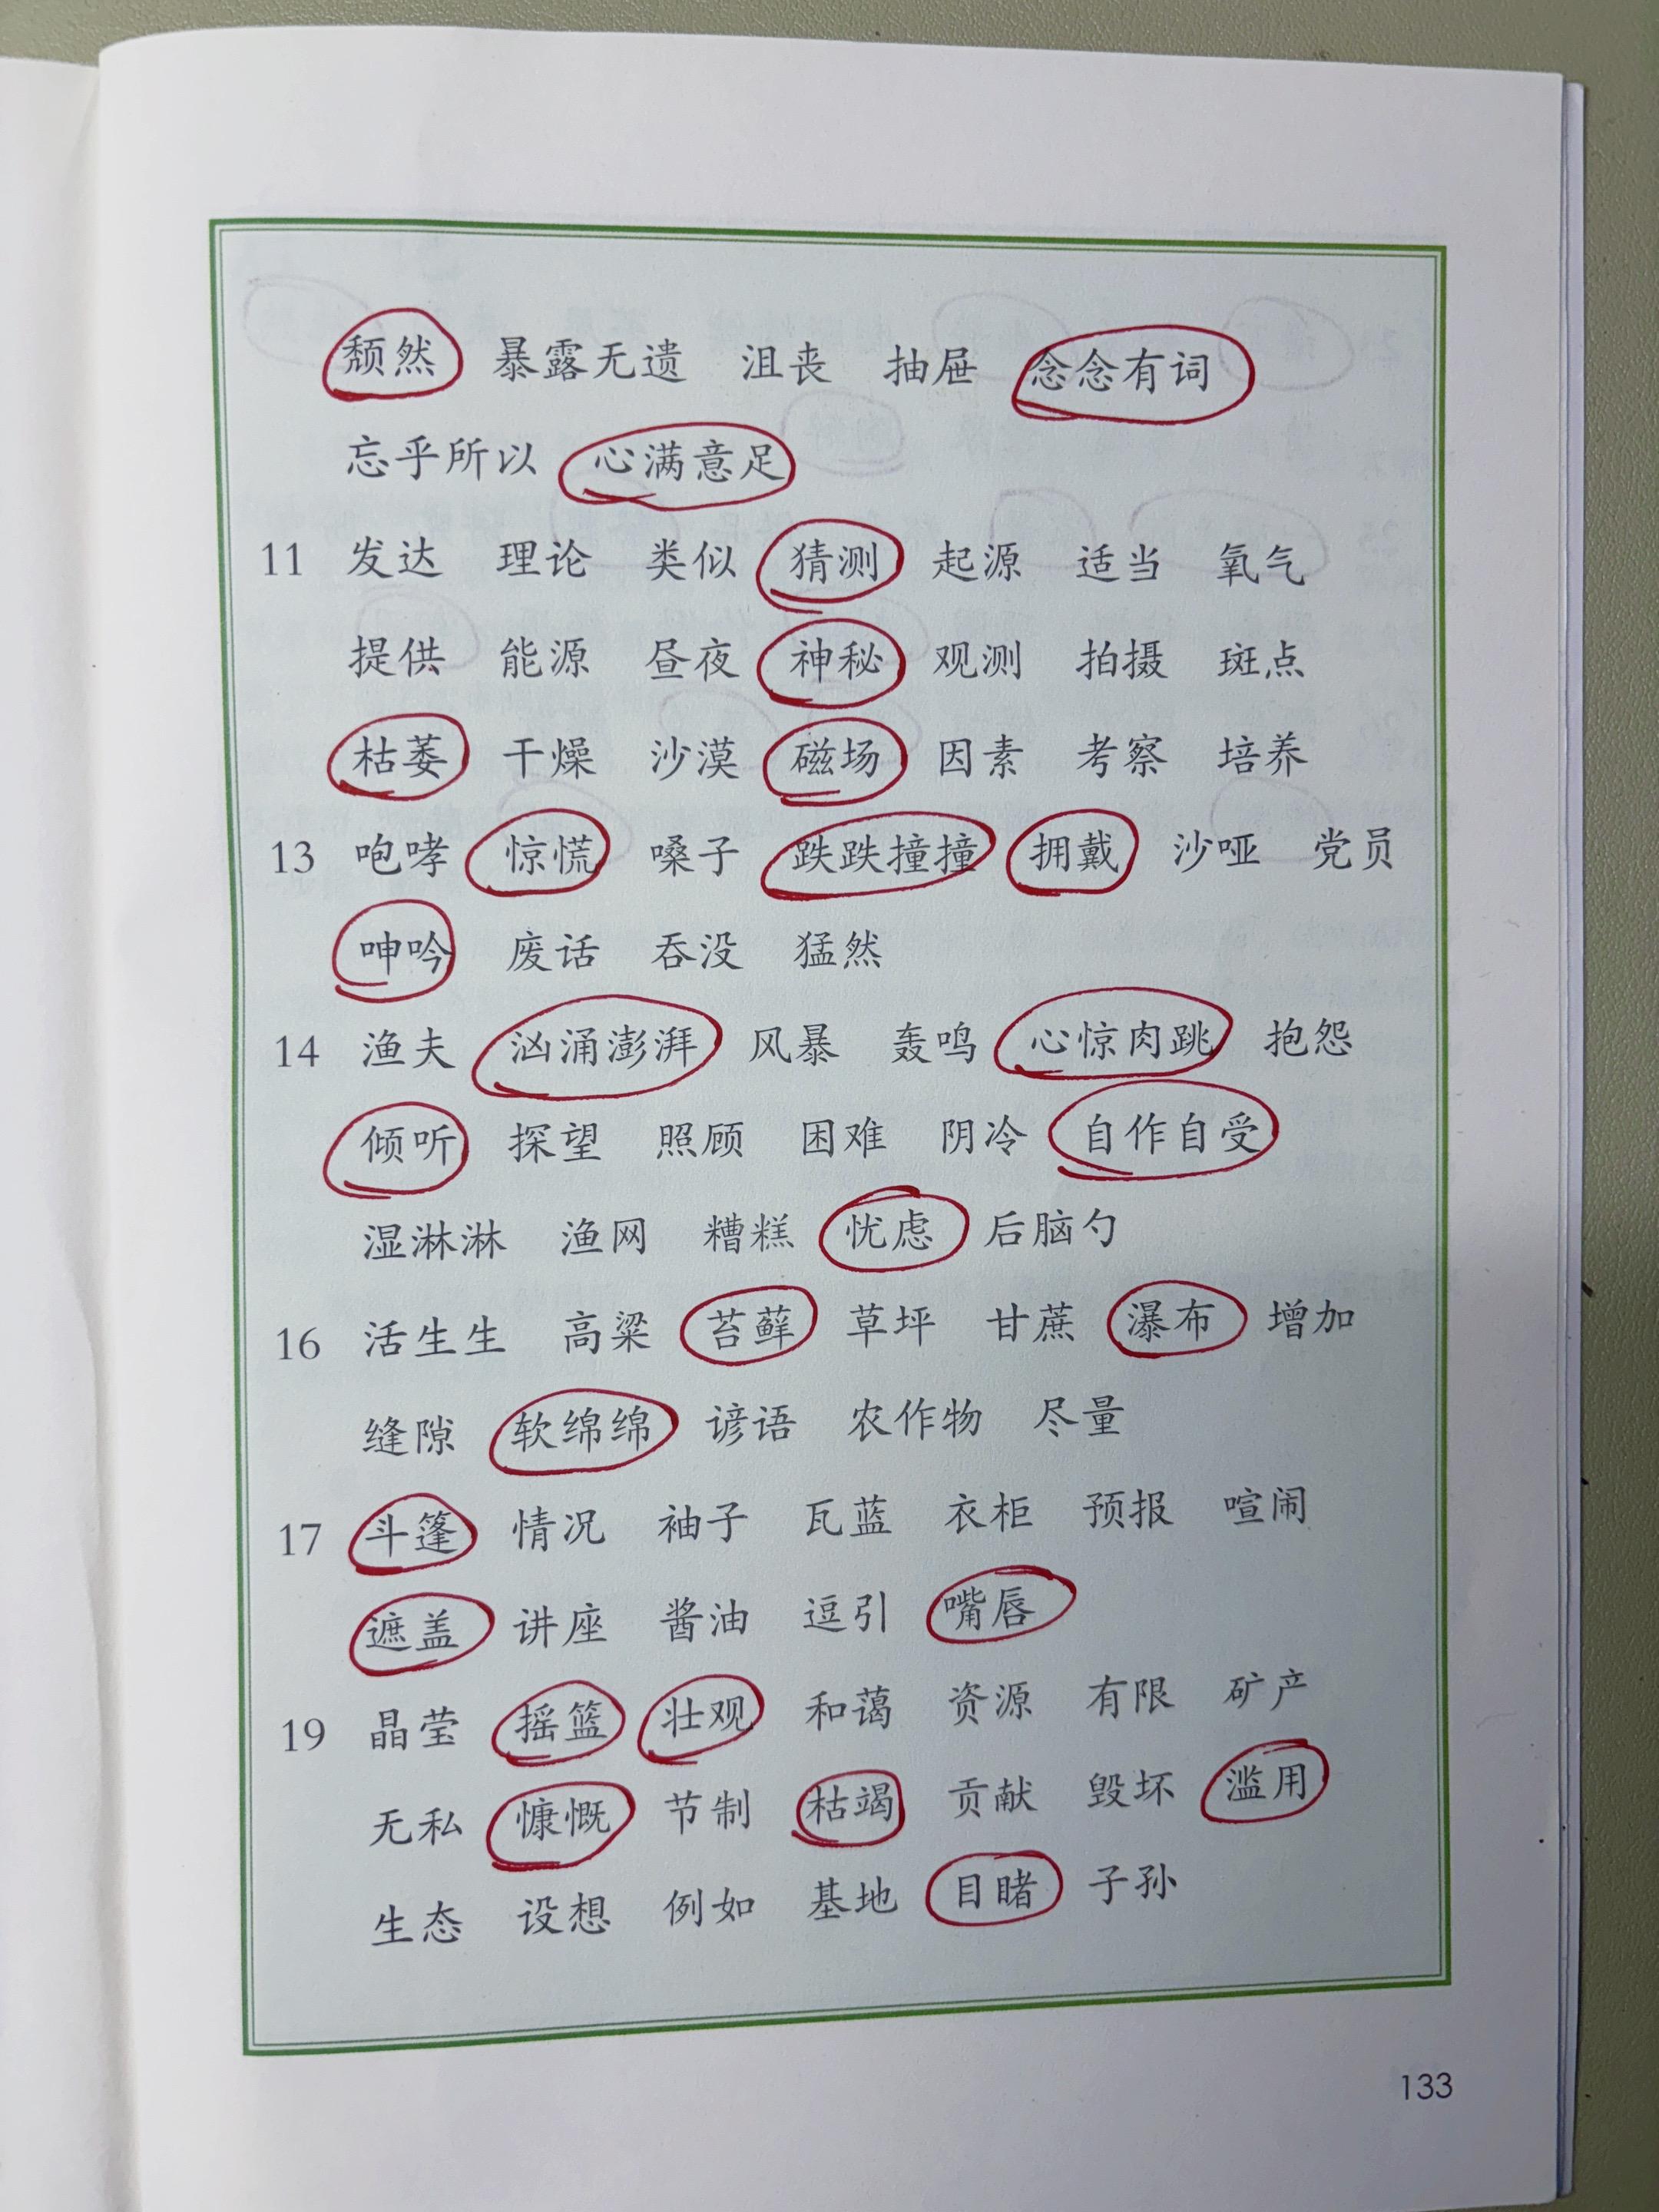 颓然 暴露无遗 沮丧 抽屉 念念有词
忘乎所以 心满意足
11 发达 理论 类似 猜测 起源 适当 氧气
提供 能源 昼夜 神秘 观测 拍摄 斑点
枯萎 干燥 沙漠 磁场 因素 考察 培养
13 咆哮 惊慌 嗓子 跌跌撞撞 拥戴 沙哑 党员
呻吟 废话 吞没 猛然
14 渔夫 汹涌澎湃 风暴 轰鸣 心惊肉跳 抱怨
倾听 探望 照顾 困难 阴冷 自作自受
湿淋淋 渔网 糟糕 忧虑 后脑勺
16 活生生 高粱 苔藓 草坪 甘蔗 瀑布 增加
缝隙 软绵绵 谚语 农作物 尽量
17 斗篷 情况 袖子 瓦蓝 衣柜 预报 喧闹
遮盖 讲座 酱油 逗引 嘴唇
19 晶莹 摇篮 壮观 和蔼 资源 有限 矿产
无私 慷慨 节制 枯竭 贡献 毁坏 滥用
生态 设想 例如 基地 目睹 子孙
133